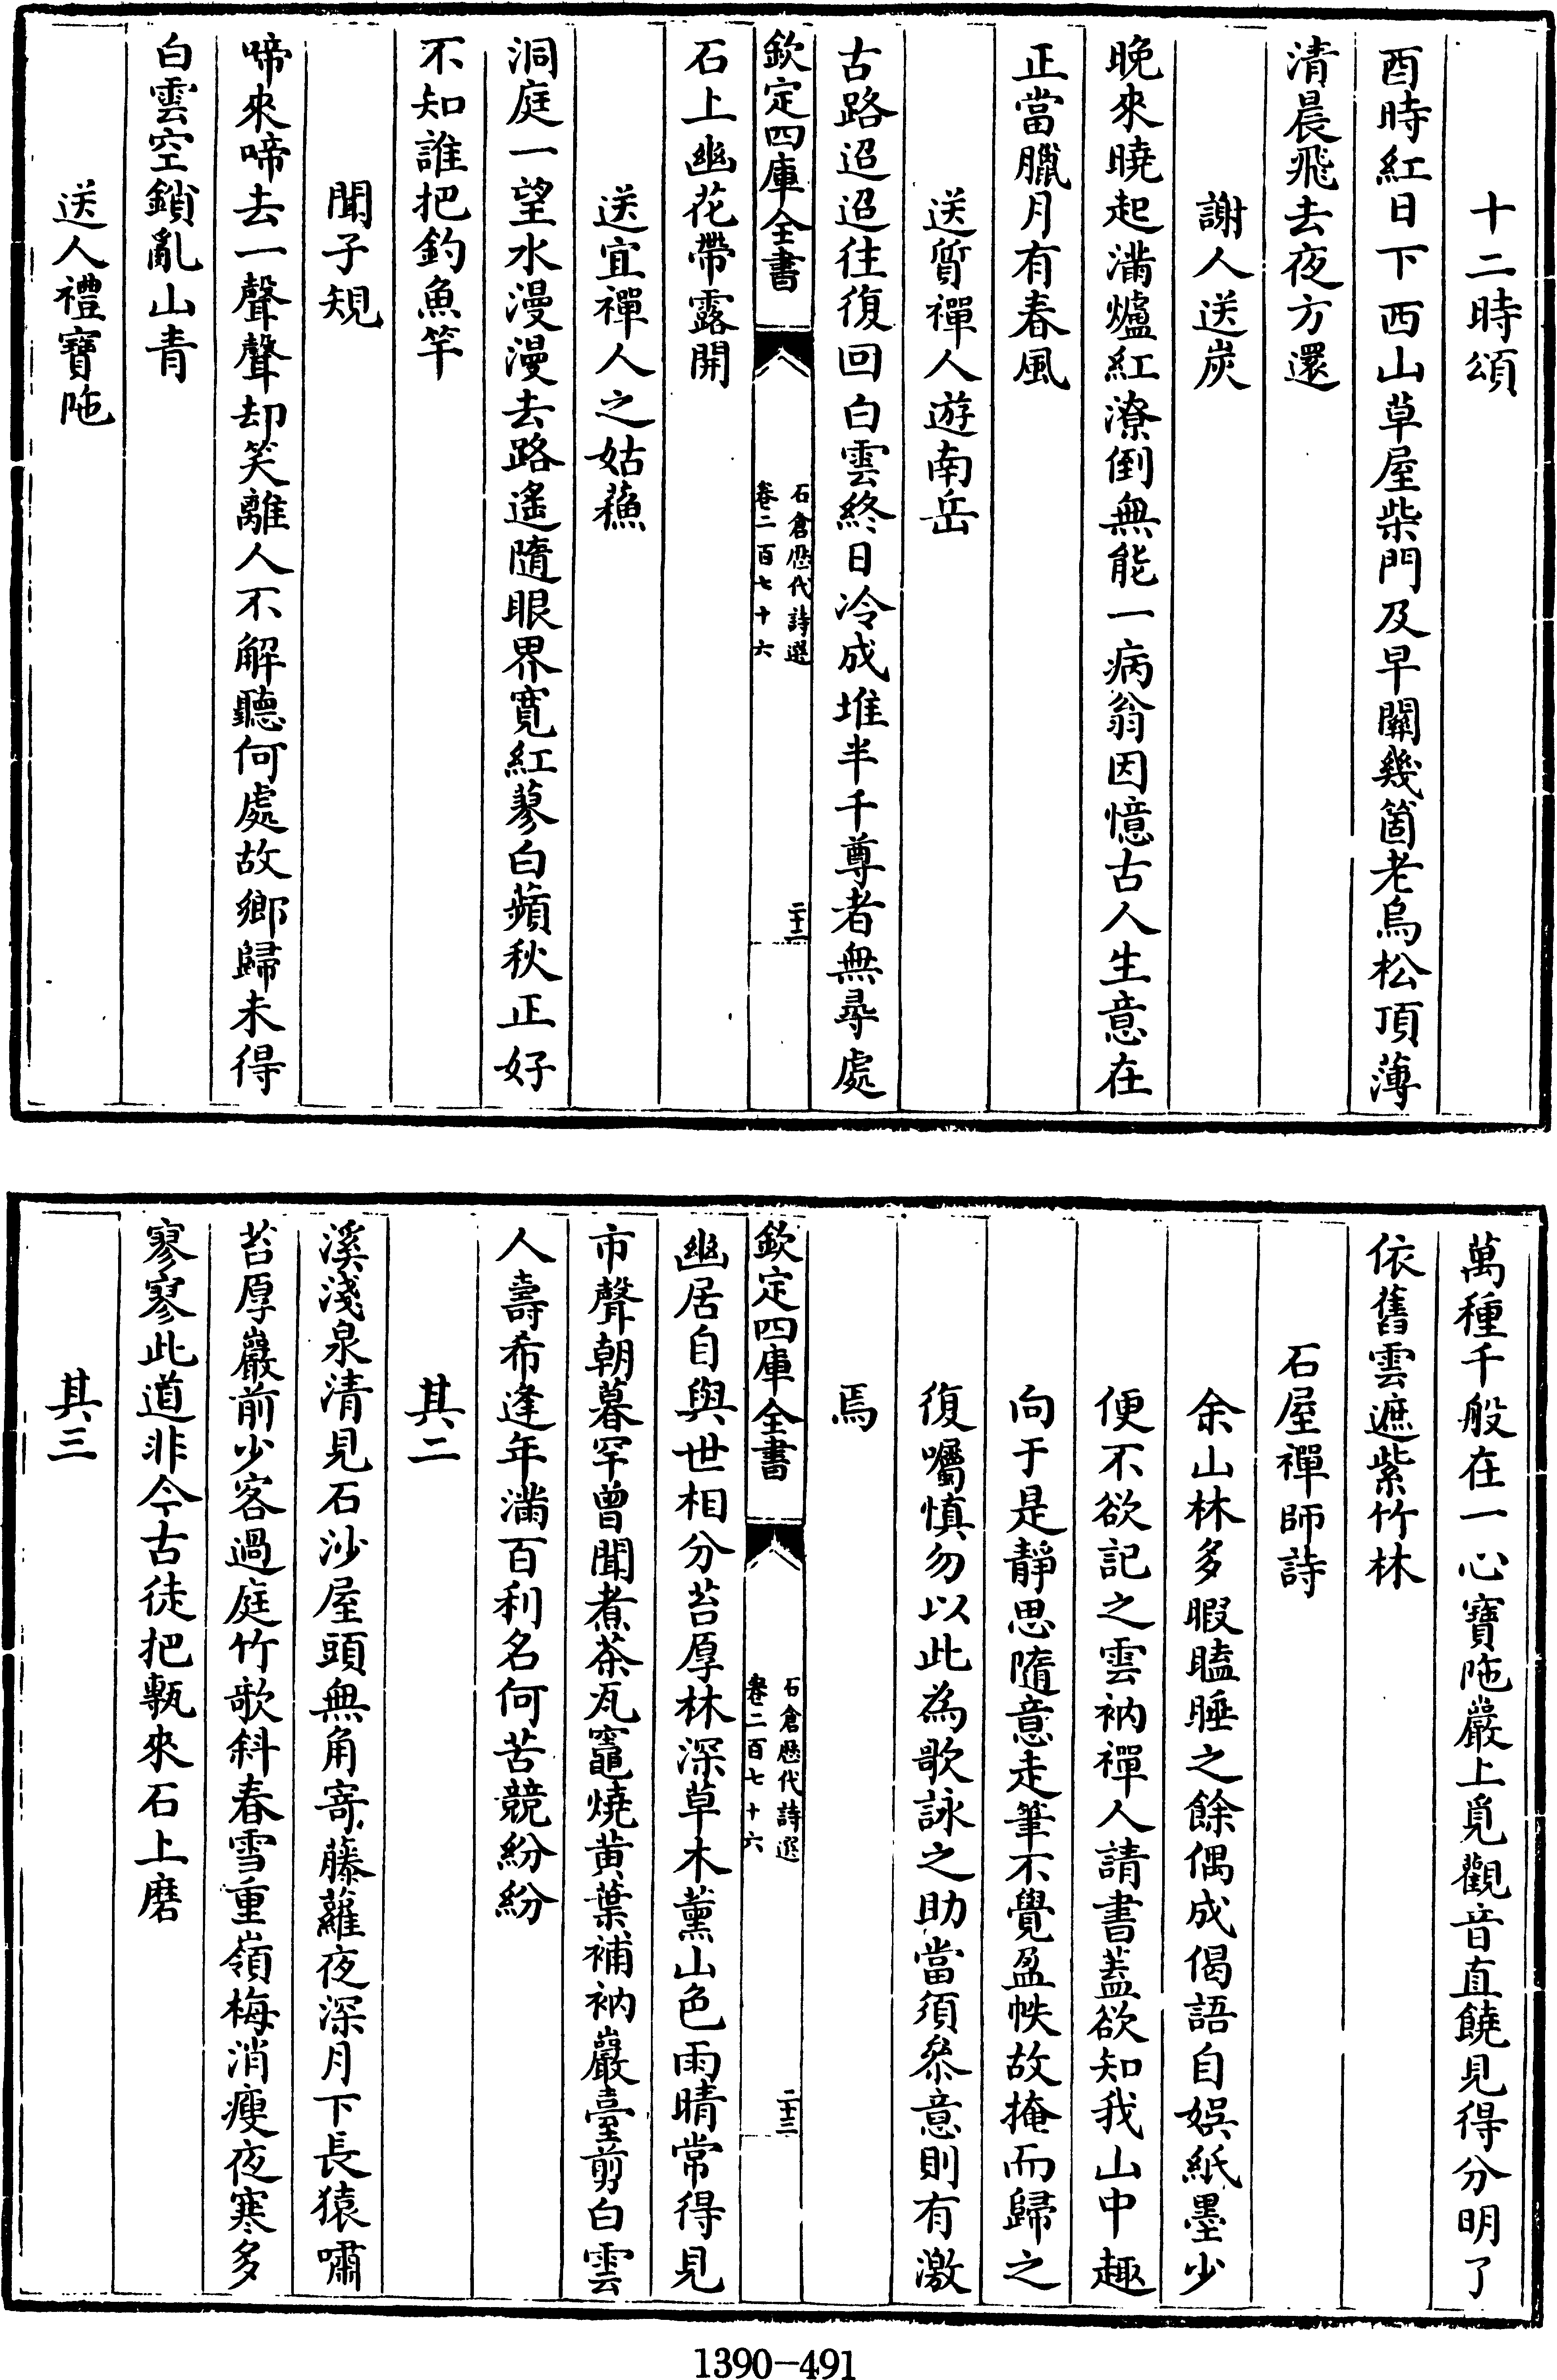 十二時頌
酉時紅日下西山草屋柴門及早關幾箇老烏松頂薄
清晨飛去夜方還
謝人送炭
晚來曉起滿爐紅潦倒無能一病翁因憶古人生意在
正當臘月有春風
送質禪人遊南岳
古路迢迢往復回白雲終日冷成堆半千尊者無尋處
欽定四庫全書
石倉歷代詩選
卷二百七十六
二十二
石上幽花帶露開
送宜禪人之姑蘓
洞庭一望水漫漫去路遙隨眼界寛紅蓼白蘋秋正好
不知誰把釣魚竿
聞子規
啼來啼去一聲聲却笑離人不解聽何處故鄉歸未得
白雲空鎖亂山青
送人禮寶陁
萬種千般在一心寶陁巖上覓觀音直饒見得分明了
依舊雲遮紫竹林
石屋禪師詩
余山林多暇瞌睡之餘偶成偈語自娛紙墨少
便不欲記之雲衲禪人請書葢欲知我山中趣
向于是靜思隨意走筆不覺盈帙故掩而歸之
復囑慎勿以此為歌詠之助當須叅意則有激
焉
欽定四庫全書
石倉歷代詩選
卷二百七十六
二十三
幽居自與世相分苔厚林深草木薰山色雨晴常得見
市聲朝暮罕曾聞煮茶瓦竈燒黄葉補衲巖臺剪白雲
人壽希逢年滿百利名何苦競紛紛
其二
溪淺泉清見石沙屋頭無角寄藤蘿夜深月下長猿嘯
苔厚巖前少客過庭竹歌斜春雪重嶺梅消瘦夜寒多
寥寥此道非今古徒把甎來石上磨
其三
1390-491